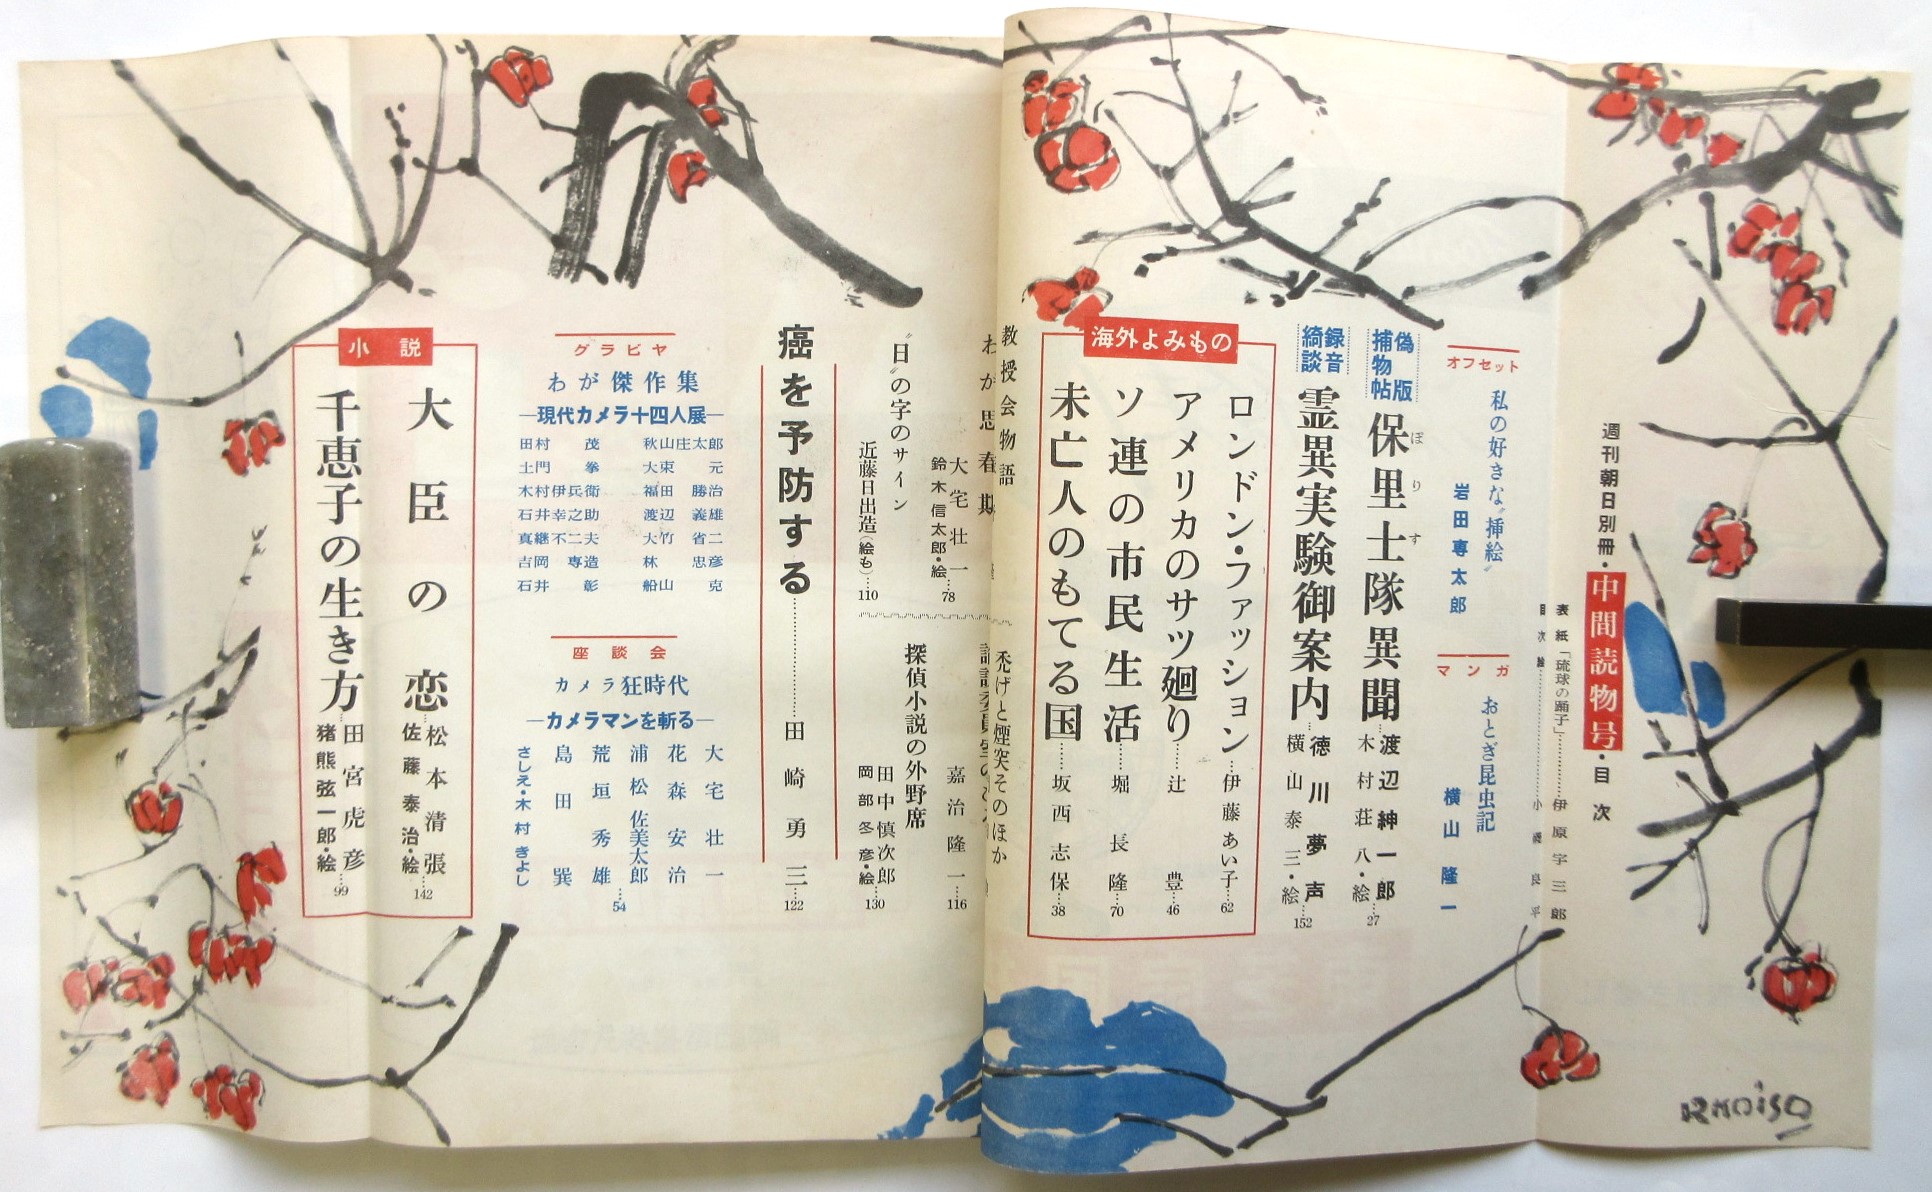 週刊朝日別冊・中間読物号・目次
表紙「琉球の踊子」………伊原宇三郎
目次絵………小磯良平
オフセット
私の好きな〝挿絵〟
岩田専太郎
マンガ
おとぎ昆虫記
横山隆一
偽版
捕物帖
保里士隊異聞…渡辺紳一郎
ぽりす
木村荘八・絵…27
録音
綺談
霊異実験御案内…徳川夢声
横山泰三・絵…152
海外よみもの
ロンドン・ファッション…伊藤あい子…62
アメリカのサツ廻り……辻豊…46
ソ連の市民生活……堀長隆…70
未亡人のもてる国……坂西志保…38
教授会物語
禿げと煙突そのほか
わが思春期
大宅壮一
鈴木信太郎・絵…78
嘉治隆一…116
〝日〟の字のサイン
近藤日出造(絵も)…110
探偵小説の外野席
田中慎次郎
岡部冬彦・絵…130
癌を予防する………田崎勇三…122
グラビヤ
わが傑作集
―現代カメラ十四人展―
田村茂 秋山庄太郎
土門拳 大束元
木村伊兵衛 福田勝治
石井幸之助 渡辺義雄
真継不二夫 大竹省二
吉岡専造 林忠彦
石井彰 船山克
座談会
カメラ狂時代
―カメラマンを斬る―
大宅壮一
花森安治
浦松佐美太郎
荒垣秀雄
島田巽
さしえ・木村きよし
…54
小説
大臣の恋…松本清張
佐藤泰治・絵…142
千恵子の生き方…田宮虎彦
猪熊弦一郎・絵…99
RKOISO